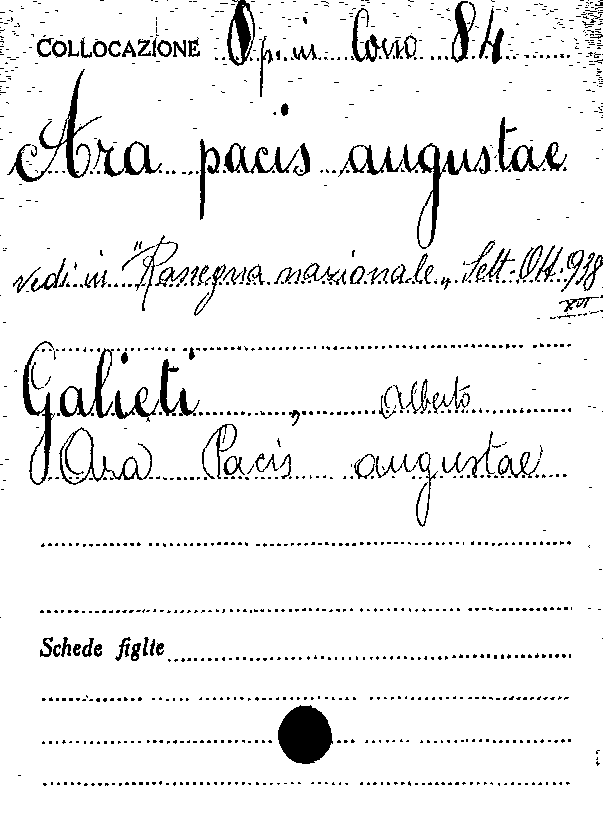 COLLOCAZIONE Op. in Corso 84
Ara pacis augustae
vedi in "Rassegna nazionale„ Sett. Ott. 938
XVI
Galieti, Alberto
Ara Pacis augustae
Schede figlie